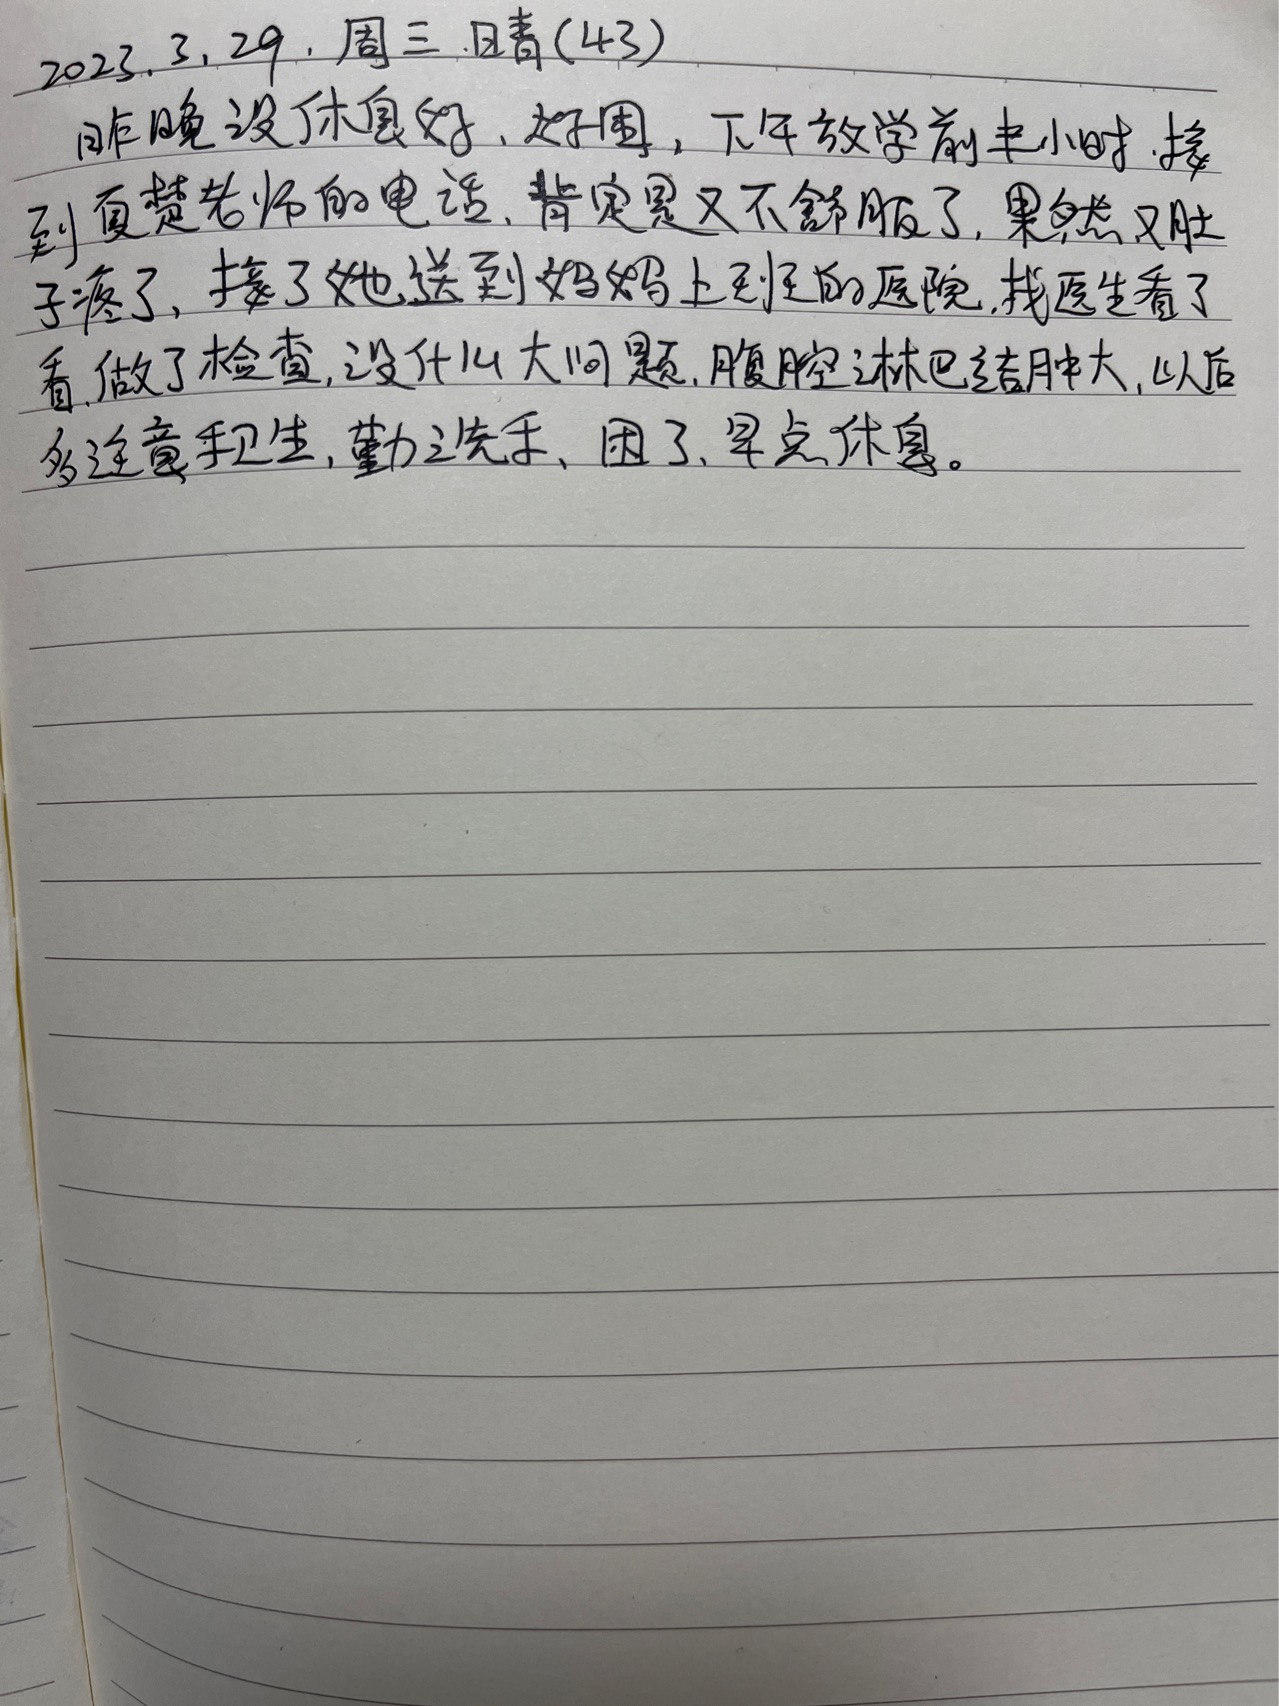 2023.3.29.周三.晴(43)
昨晚没休息好、好困,下午放学前半小时.接
到夏楚老师的电话、肯定是又不舒服了.果然又肚
子疼了、接了她送到妈妈上班的医院.找医生看了
看.做了检查,没什么大问题.腹腔淋巴结肿大,以后
多注意手卫生,勤洗手、困了、早点休息。